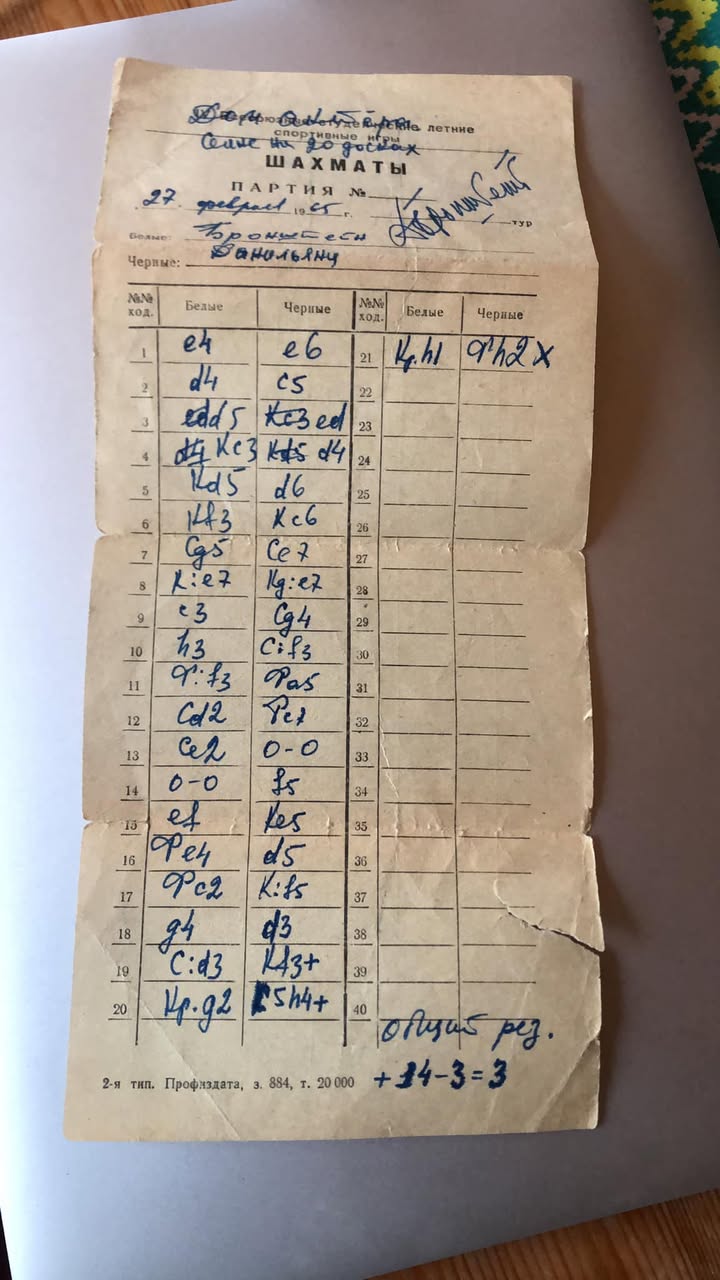 Дом
летние
спортивные игры
Сеанс на 20 досках
ШАХМАТЫ
ПАРТИЯ №
27 февраля 1965 г. тур
Белые: Бронштейн
Черные: Данильянц
№№ ход. Белые Черные №№ ход. Белые Черные
1 e4 e6 21 Кр.h1 Фh2x
2 d4 c5 22
3 d5 ed 23
4 Кc3 d4 24
5 Кd5 d6 25
6 Кf3 Кc6 26
7 Сg5 Сe7 27
8 К:e7 Кg:e7 28
9 c3 Сg4 29
10 h3 С:f3 30
11 Ф:f3 Фa5 31
12 Сd2 Фc7 32
13 Сe2 0-0 33
14 0-0 f5 34
15 ef Кe5 35
16 Фe4 d5 36
17 Фc2 К:f5 37
18 g4 d3 38
19 С:d3 Кf3+ 39
20 Кр.g2 5h4+ 40
общий рез.
+14-3=3
2-я тип. Профиздата, з. 884, т. 20 000